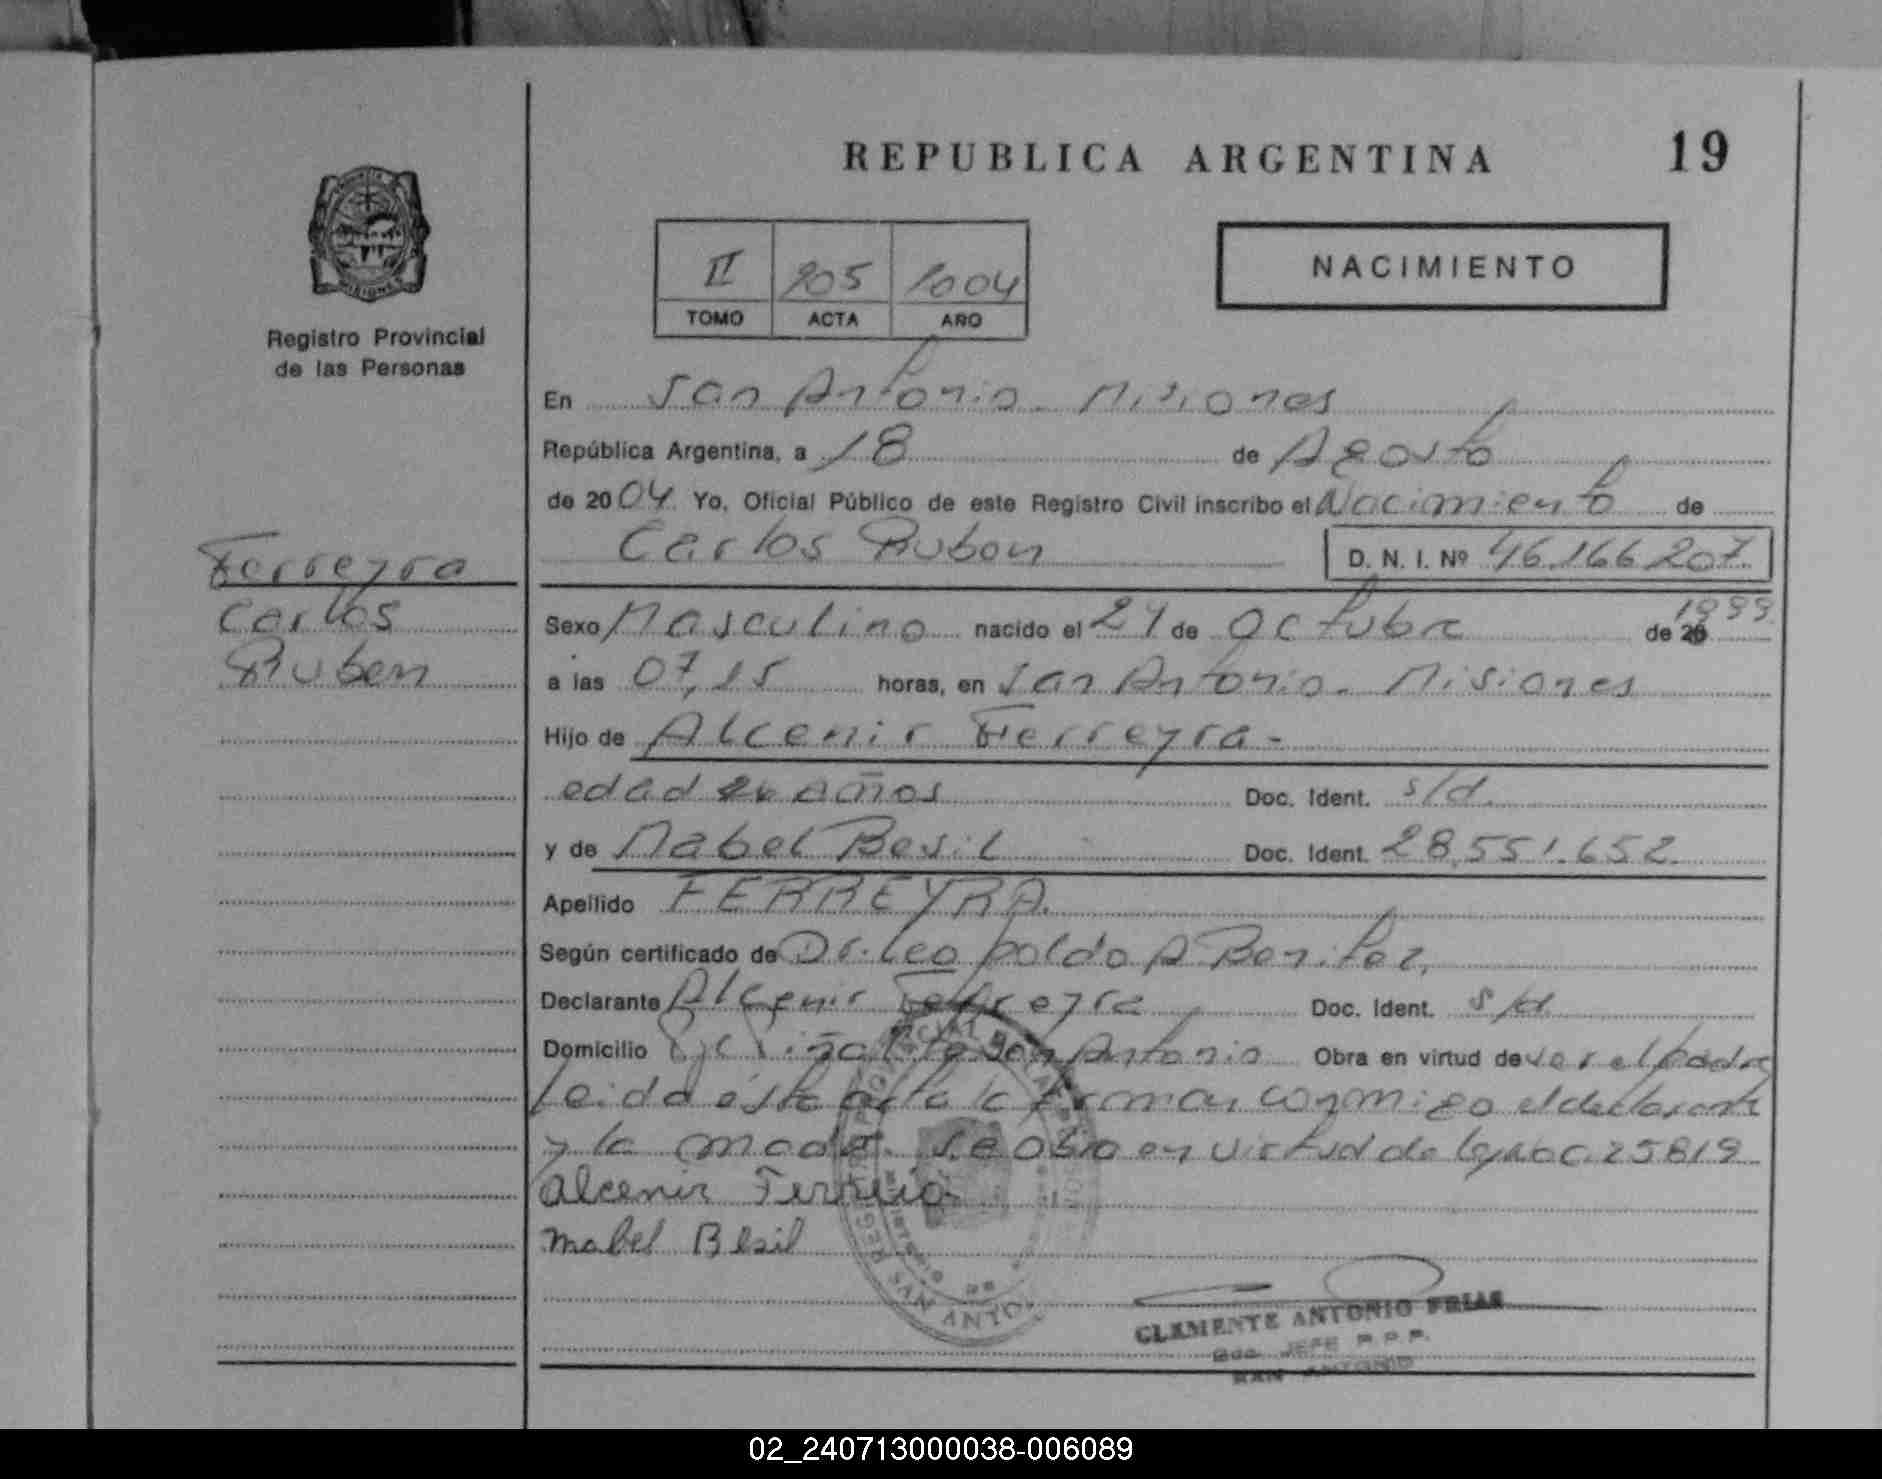 REPUBLICA ARGENTINA 19
II 205 2004
TOMO ACTA AÑO
NACIMIENTO
Registro Provincial
de las Personas
En San Antonio. Misiones
República Argentina, a 18 de Agosto
de 2004 Yo, Oficial Público de este Registro Civil inscribo el Nacimiento de
Carlos Ruben D. N. I. Nº 46.166.207.
Ferreyra
Carlos
Ruben
Sexo Masculino nacido el 24 de Octubre de 1999
a las 07,15 horas, en San Antonio. Misiones
Hijo de Alcenir Ferreyra-
edad 26 años Doc. Ident. s/d.
y de Mabel Besil Doc. Ident. 28.551.652.
Apellido FERREYRA.
Según certificado de Dr. Leopoldo A Benitez,
Declarante Alcenir Ferreyra Doc. Ident. s/d
Domicilio San Antonio Obra en virtud de ser el padre
Leida ésta acta la firman conmigo el declarante
y la madre. se obro en virtud de ley nac. 25819
Alcenir Ferreira
Mabel Besil
CLEMENTE ANTONIO FRIAS
JEFE R.P.P.
SAN ANTONIO
02_240713000038-006089